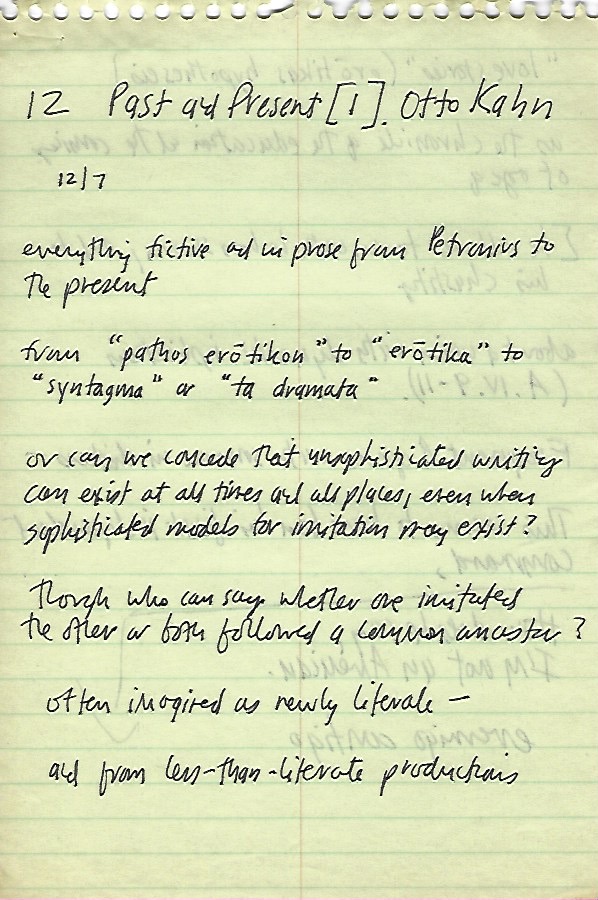 12 Past and Present [1]. Otto Kahn
12/7
everything fictive and in prose from Petronius to
the present
from "pathos erōtikon" to "erōtika" to
"syntagma" or "ta dramata"
or can we concede that unsophisticated writing
can exist at all times and all places, even when
sophisticated models for imitation may exist?
though who can say whether one imitated
the other or both followed a common ancestor?
often imagined as newly literate —
and from less-than-literate productions